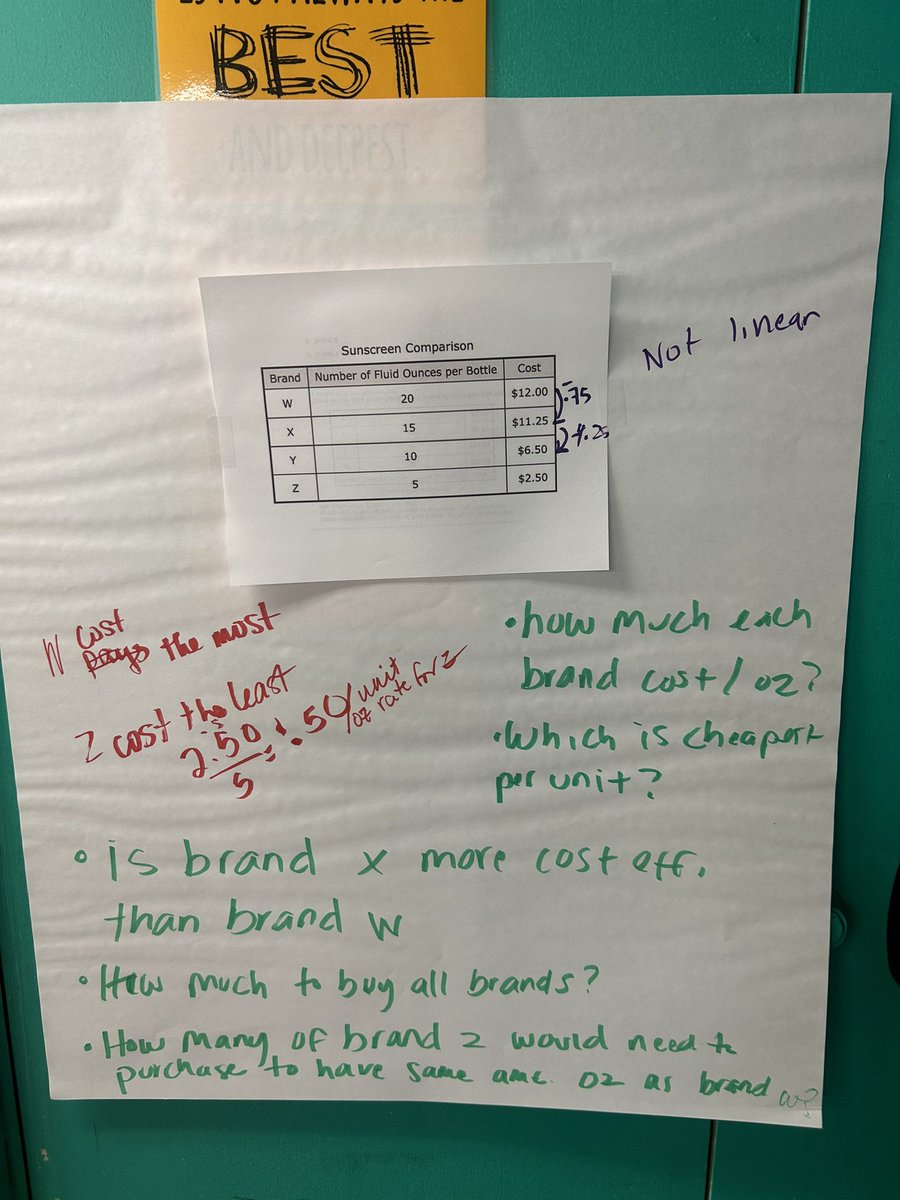 BEST
AND DEEPEST
Sunscreen Comparison
Brand Number of Fluid Ounces per Bottle Cost
W 20 $12.00
X 15 $11.25
Y 10 $6.50
Z 5 $2.50
-.75
-4.25
Not linear
W cost
the most
Z cost the least
is
2.50
5
= .50/unit
oz rate for z
•how much each
brand cost / oz?
•Which is cheapest
per unit?
• is brand x more cost eff.
than brand W
• How much to buy all brands?
• How many of brand z would need to
purchase to have same amt. oz as brand w?